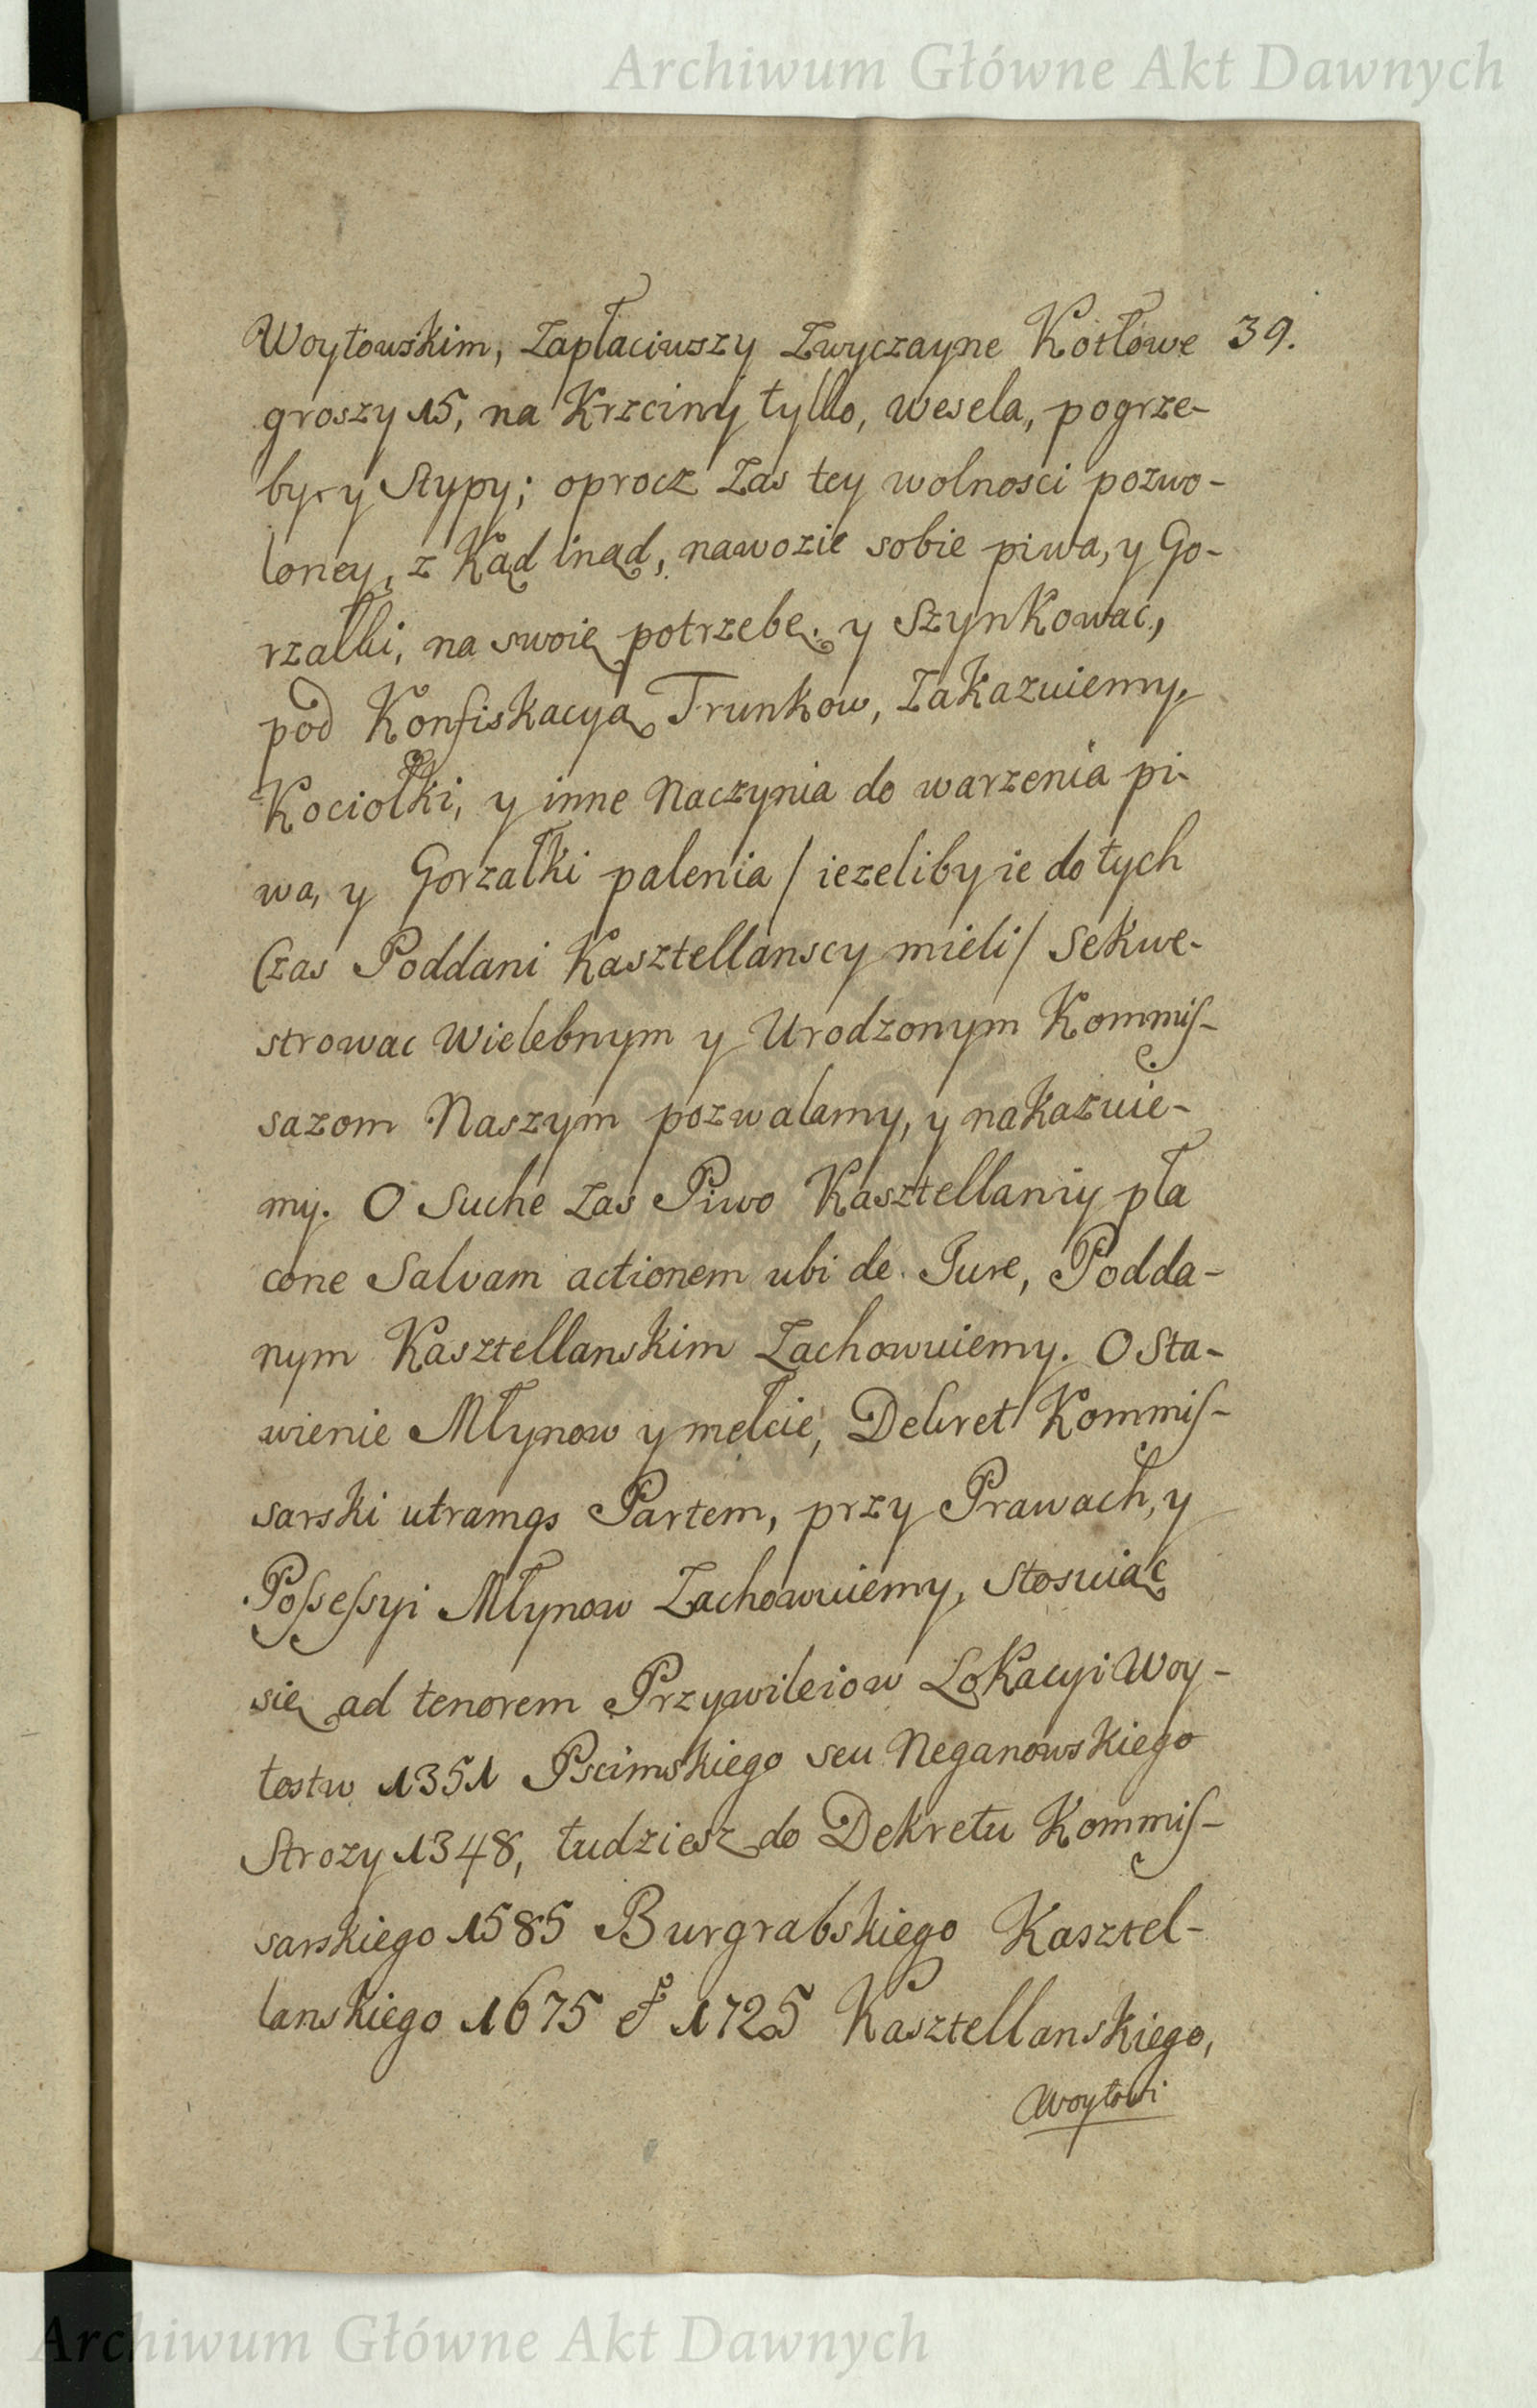 Archiwum Główne Akt Dawnych
Woytowskim, Zapłaciwszy Zwyczayne Kotłowe 39.
groszy 15, na Krzciny tylko, wesela, pogrze-
by, y Stypy; oprocz Zas tey wolnosci pozwo-
loney, z Kąd inąd, nawozic sobie piwa, y Go-
rzałki, na swoię potrzebę, y Szynkowac,
pod Konfiskacyą Trunkow, Zakazuiemy,
Kociołki, y inne Naczynia do warzenia pi-
wa, y Gorzałki palenia / iezeliby ie do tych
Czas Poddani Kasztellanscy mieli / Sekwe-
strowac Wielebnym y Urodzonym Kommis-
sazom Naszym pozwalamy, y nakazuie-
my. O Suche Zas Piwo Kasztellaniy pła
cone Salvam actionem ubi de Jure, Podda-
nym Kasztellanskim Zachowuiemy. O Sta-
wienie Młynow y melcie, Dekret Kommis-
sarski utramqs Partem, przy Prawach, y
Possessyi Młynow Zachowuiemy, Stosuiąc
się ad tenorem Przywileiow Lokacyi Woy-
tostw 1351 Pscimskiego seu Neganowskiego
Strozy 1348, tudziesz do Dekretu Kommis-
sarskiego 1585 Burgrabskiego Kasztel-
lanskiego 1675 et 1725 Kasztellanskiego,
Woytowi
Archiwum Główne Akt Dawnych